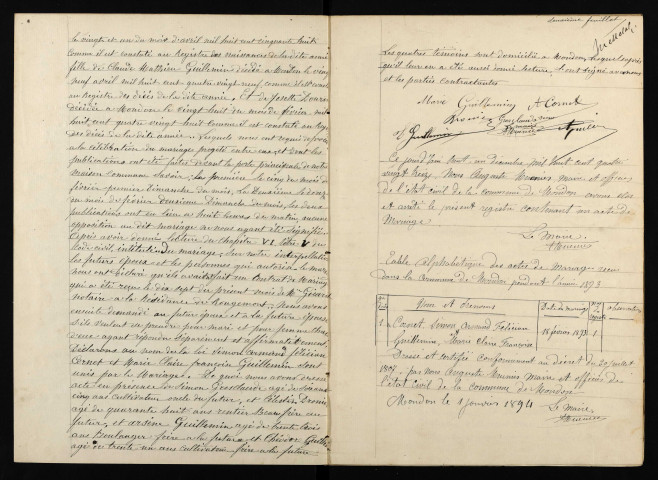 le vingt et un du mois d'avril mil huit cent cinquante huit
comme il est constaté au Registre des naissances de la dite année
fille de Claude Mathieu Guillemin décédé à Mondon le vingt
neuf avril mil huit cent quatre vingt neuf comme il est constaté
au Registre des décès de la dite année et de Josette
décédée à Mondon le vingt huit du mois de février mil
huit cent quatre vingt huit comme il est constaté au Registre
des décès de la dite année Lesquels nous ont requis de procéder
à la célébration du mariage projeté entre eux et dont les
publications ont été faites devant la porte principale de notre
maison commune savoir : la première le cinq du mois de
février premier dimanche du mois, la deuxième le douze
du mois de février deuxième Dimanche du mois, les deux
publications ont eu lieu à huit heures du matin, aucune
opposition au dit mariage ne nous ayant été signifiée
après avoir donné lecture du chapitre VI titre V du
code civil, intitulé du mariage, sur notre interpellation
les futurs époux et les personnes qui autorisent le mariage
nous ont déclaré qu'il avait été fait un contrat de mariage
qui a été reçu le dix sept du présent mois de Me Girard
notaire à la Résidence de Rougemont. Nous avons
ensuite demandé au futur époux et à la future épouse
s'ils veulent se prendre pour mari et pour femme chacun
d'eux ayant répondu séparément et affirmativement,
Déclarons au nom de la loi Simon Armand félicien
Cornet et Marie Claire françoise Guillemin sont
unis par le Mariage. De quoi nous avons dressé
acte en présence de Simon âgé de soixante
cinq ans cultivateur oncle du futur, et Célestin
agé de quarante huit ans rentier Beau frère du
futur, et arsène Guillemin agé de trente trois
ans Boulanger frère à la future, et Guille
agé de trente un ans cultivateur frère à la future
deuxième feuillet
Les quatre témoins sont domiciliés à Mondon, lesquels après
qu'il leur en a été aussi donné lecture, ont signé avec nous
et les parties contractantes.
Marie Guillemin A Cornet
Guillemin
Ce jourd'hui trent un Décembre mil huit cent quatre
vingt treize Nous Auguste Meunier Maire et officier
de l'état civil de la commune de Mondon avons clos
et arrêté le présent registre contenant un acte de
Mariage
Le Maire,
Meunier
Table alphabétique des actes de Mariage reçus
dans la commune de Mondon pendant l'année 1893
Nom et Prénoms Date du mariage observations
1 Cornet Simon Armand Félicien 18 février 1893 1
Guillemin Marie Claire Françoise
Dressé et certifié conformément au décret du 20 juillet
1807 par nous Auguste Meunier Maire et officier de
l'état civil de la commune de Mondon
Mondon le 1 janvier 1894
Le Maire
Meunier